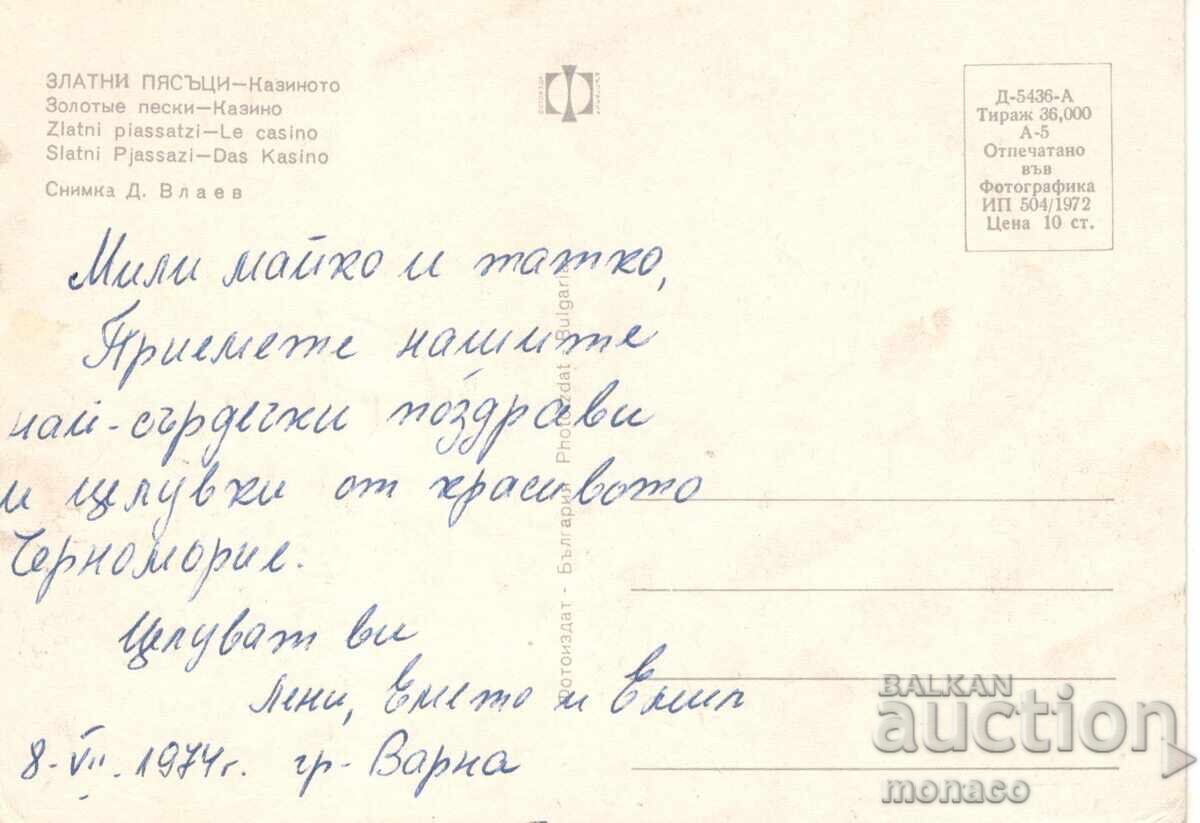 ЗЛАТНИ ПЯСЪЦИ—Казиното
Золотые пески—Казино
Zlatni piassatzi—Le casino
Slatni Pjassazi—Das Kasino
Снимка Д. Влаев
Д-5436-А
Тираж 36,000
А-5
Отпечатано
във
Фотографика
ИП 504/1972
Цена 10 ст.
Мили майко и татко,
Приемете нашите
най-сърдечни поздрави
и целувки от красивото
Черноморие.
Целуват ви
Лени, Емето и Емил
8-VII-1974г. гр-Варна
Фотоиздат - България Photoizdat - Bulgaria
BALKAN
auction
monaco